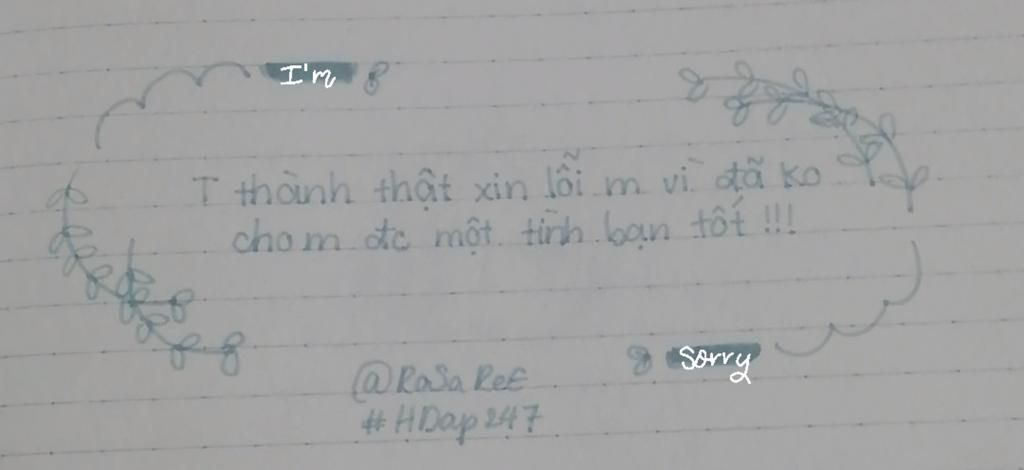 I'm
T thành thật xin lỗi m vì đã ko
cho m đc một tình bạn tốt !!!
Sorry
@RaSa ReE
#HDap247